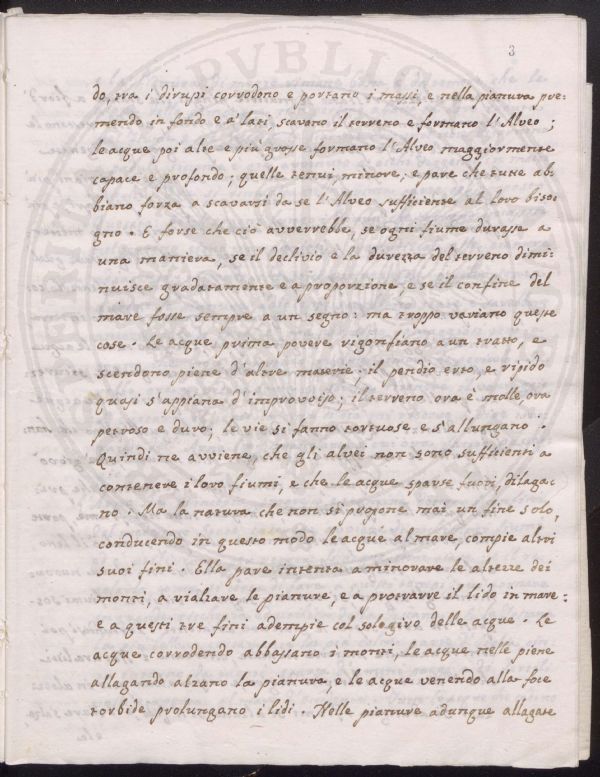 3
do, tra i dirupi corrodono e portano i massi, e nella pianura pre=
mendo in fondo e a' lati, scavano il terreno e formano l'Alveo;
le acque poi alte e più grosse formano l'Alveo maggiormente
capace e profondo; quelle tenui, minore; e pare che tutte ab=
biano forza a scavarsi da se l'Alveo sufficiente al loro biso=
gno. E forse che ciò avverrebbe, se ogni fiume durasse a
una maniera, se il declivio e la durezza del terreno dimi=
nuisce gradatamente e a proporzione, e se il confine del
mare fosse sempre a un segno: ma troppo variano queste
cose. Le acque prima povere rigonfiano a un tratto, e
scendono piene d'altre materie; il pendio erto, e ripido
quasi s'appiana d'improvviso; il terreno ora è molle ora
petroso e duro; le vie si fanno tortuose e s'allungano.
Quindi ne avviene, che gli alvei non sono sufficienti a
contenere i loro fiumi, e che le acque sparse fuori, dilaga=
no. Ma la natura che non si propone mai un fine solo,
conducendo in questo modo le acque al mare, compie altri
suoi fini. Ella pare intenta a minorare le altezze dei
monti, a rialzare le pianure, e a protrarre il lido in mare=
e a questi tre fini adempie col solo giro delle acque. Le
acque corrodendo abbassano i monti, le acque nelle piene
allagando alzano la pianura, e le acque venendo alla foce
torbide prolungano i lidi. Nelle pianure adunque allagate